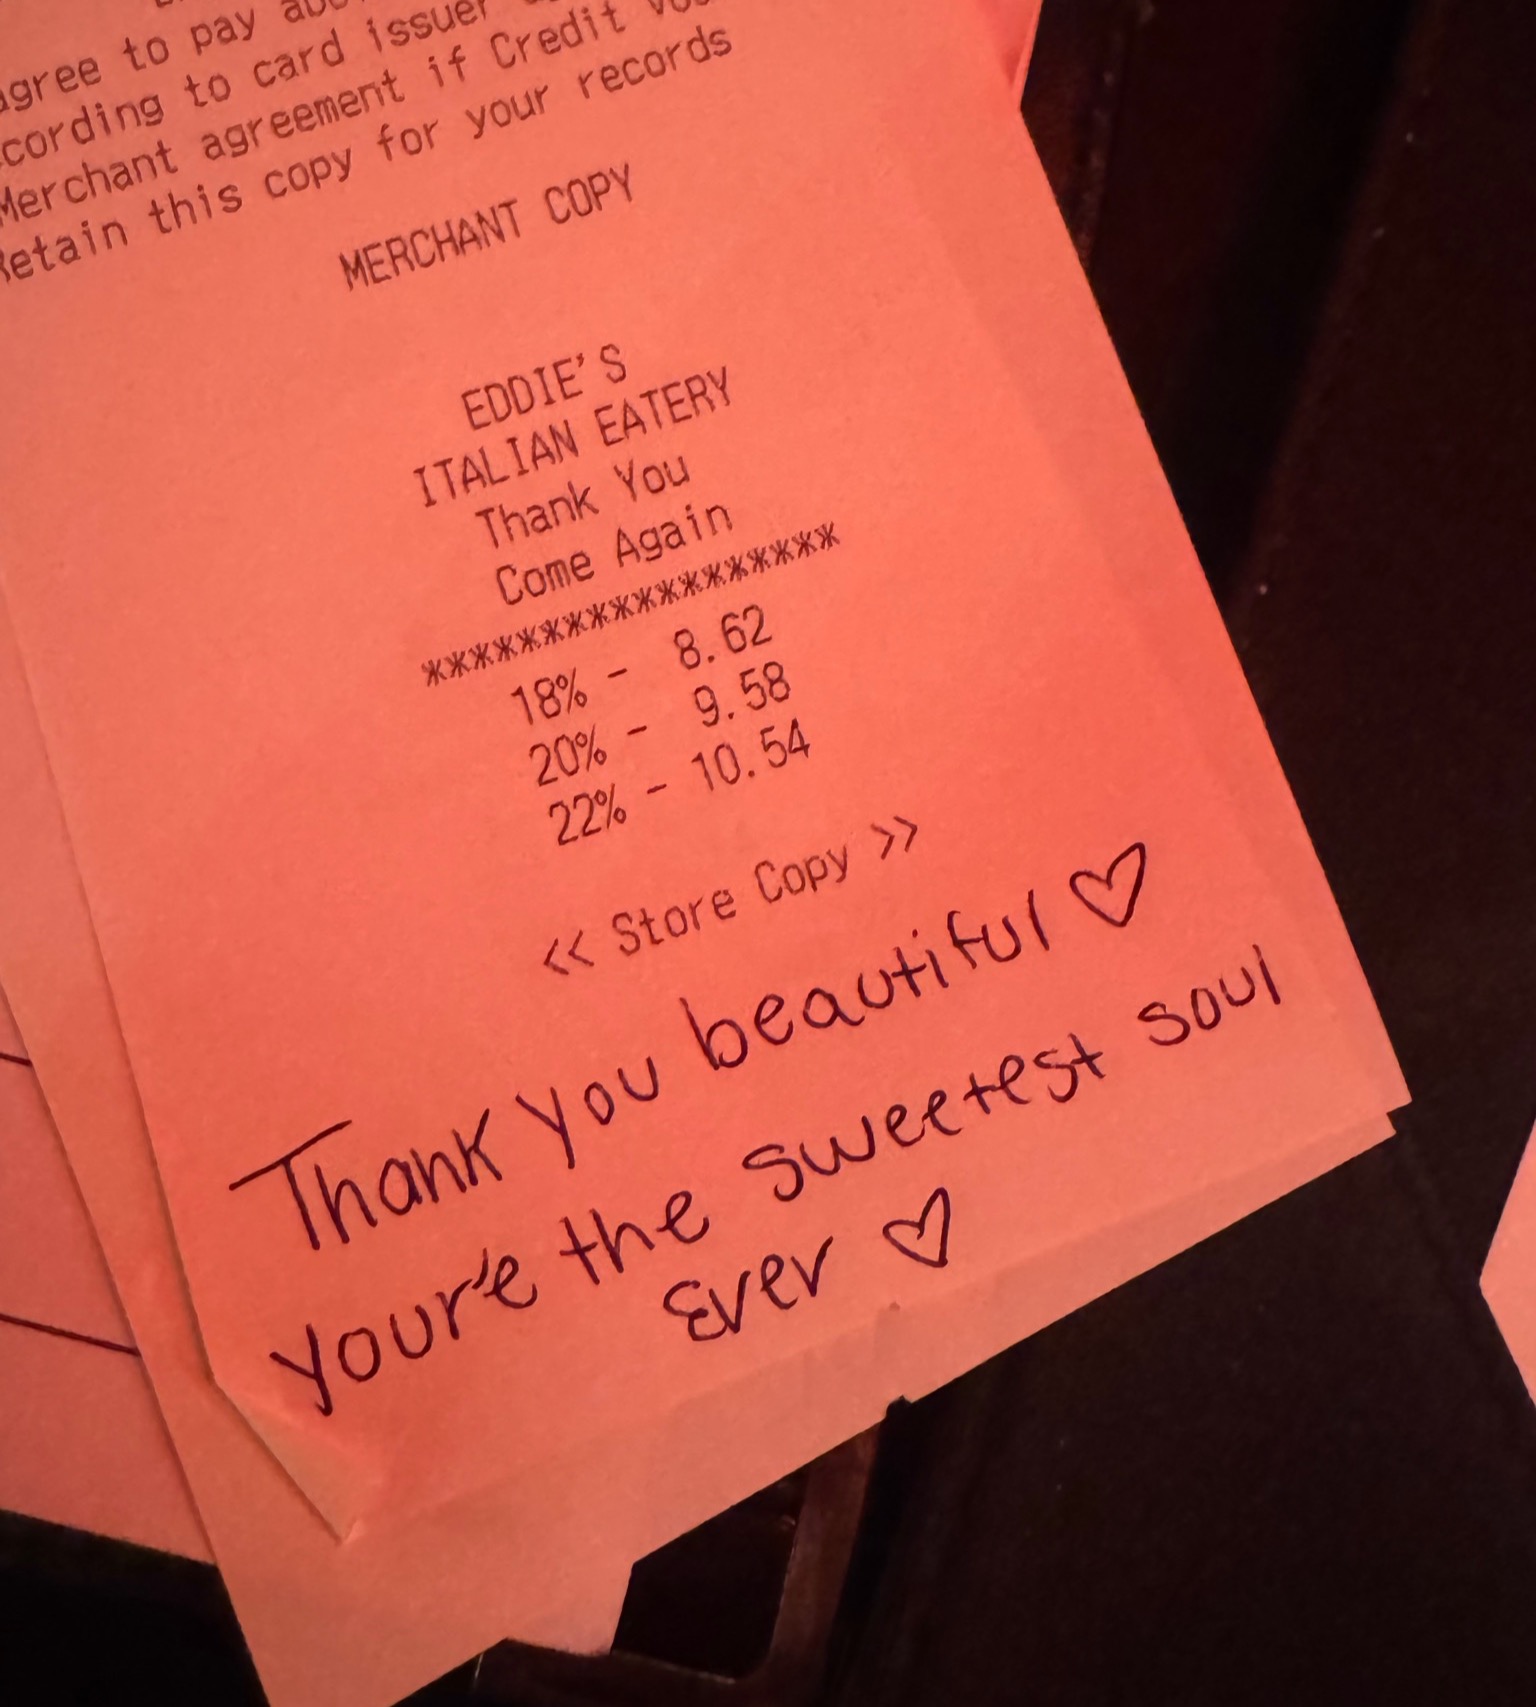 agree to pay
according to card issuer
Merchant agreement if Credit
Retain this copy for your records
MERCHANT COPY
EDDIE'S
ITALIAN EATERY
Thank You
Come Again
******************
18% - 8.62
20% - 9.58
22% - 10.54
<< Store Copy >>
Thank you beautiful ♡
your'e the sweetest soul
Ever ♡